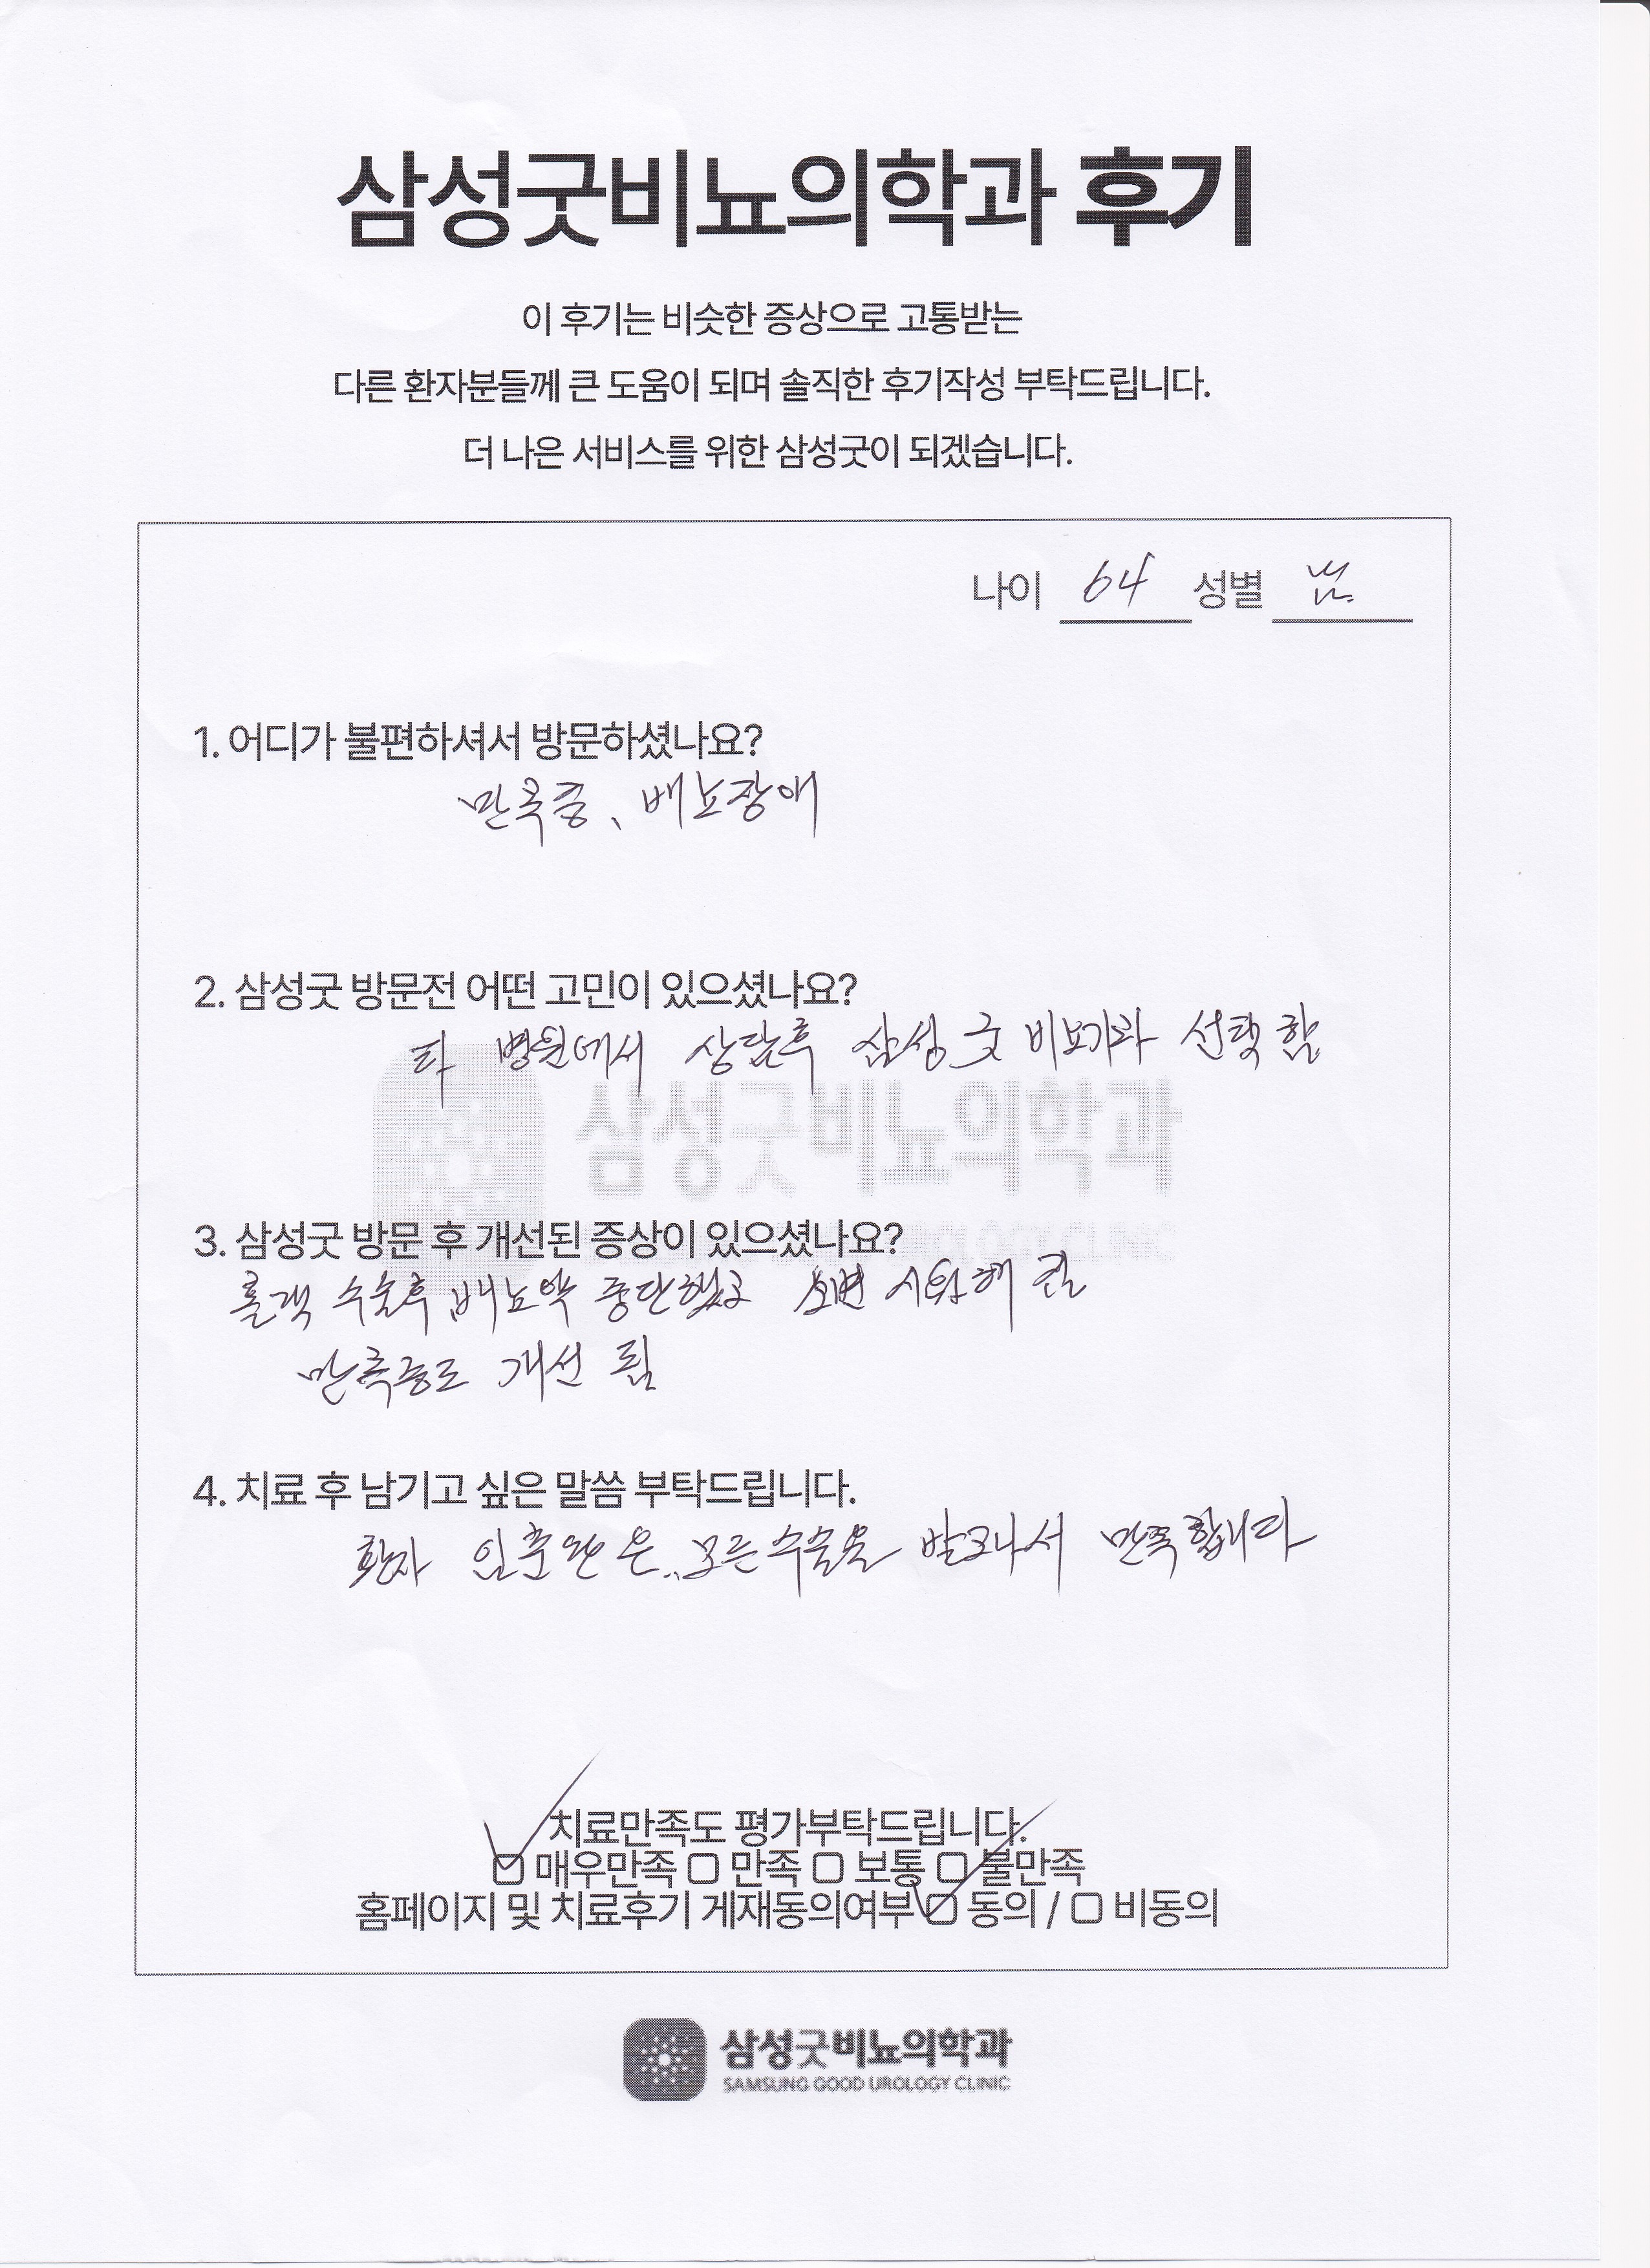 삼성굿비뇨의학과 후기
이 후기는 비슷한 증상으로 고통받는
다른 환자분들께 큰 도움이 되며 솔직한 후기작성 부탁드립니다.
더 나은 서비스를 위한 삼성굿이 되겠습니다.
나이 64 성별 남
1. 어디가 불편하셔서 방문하셨나요?
만곡증, 배뇨장애
2. 삼성굿 방문전 어떤 고민이 있으셨나요?
타 병원에서 상담후 삼성굿 비뇨기과 선택함
삼성굿비뇨의학과
UROLOGY CLINIC
3. 삼성굿 방문 후 개선된 증상이 있으셨나요?
홀랩 수술후 배뇨약 중단했고 소변 시원해 짐
만곡증도 개선 됨
4. 치료 후 남기고 싶은 말씀 부탁드립니다.
환자 은.. 모든수술을 만족합니다
치료만족도 평가부탁드립니다.
매우만족 만족 보통 불만족
홈페이지 및 치료후기 게재동의여부 동의 / 비동의
삼성굿비뇨의학과
SAMSUNG GOOD UROLOGY CLINIC